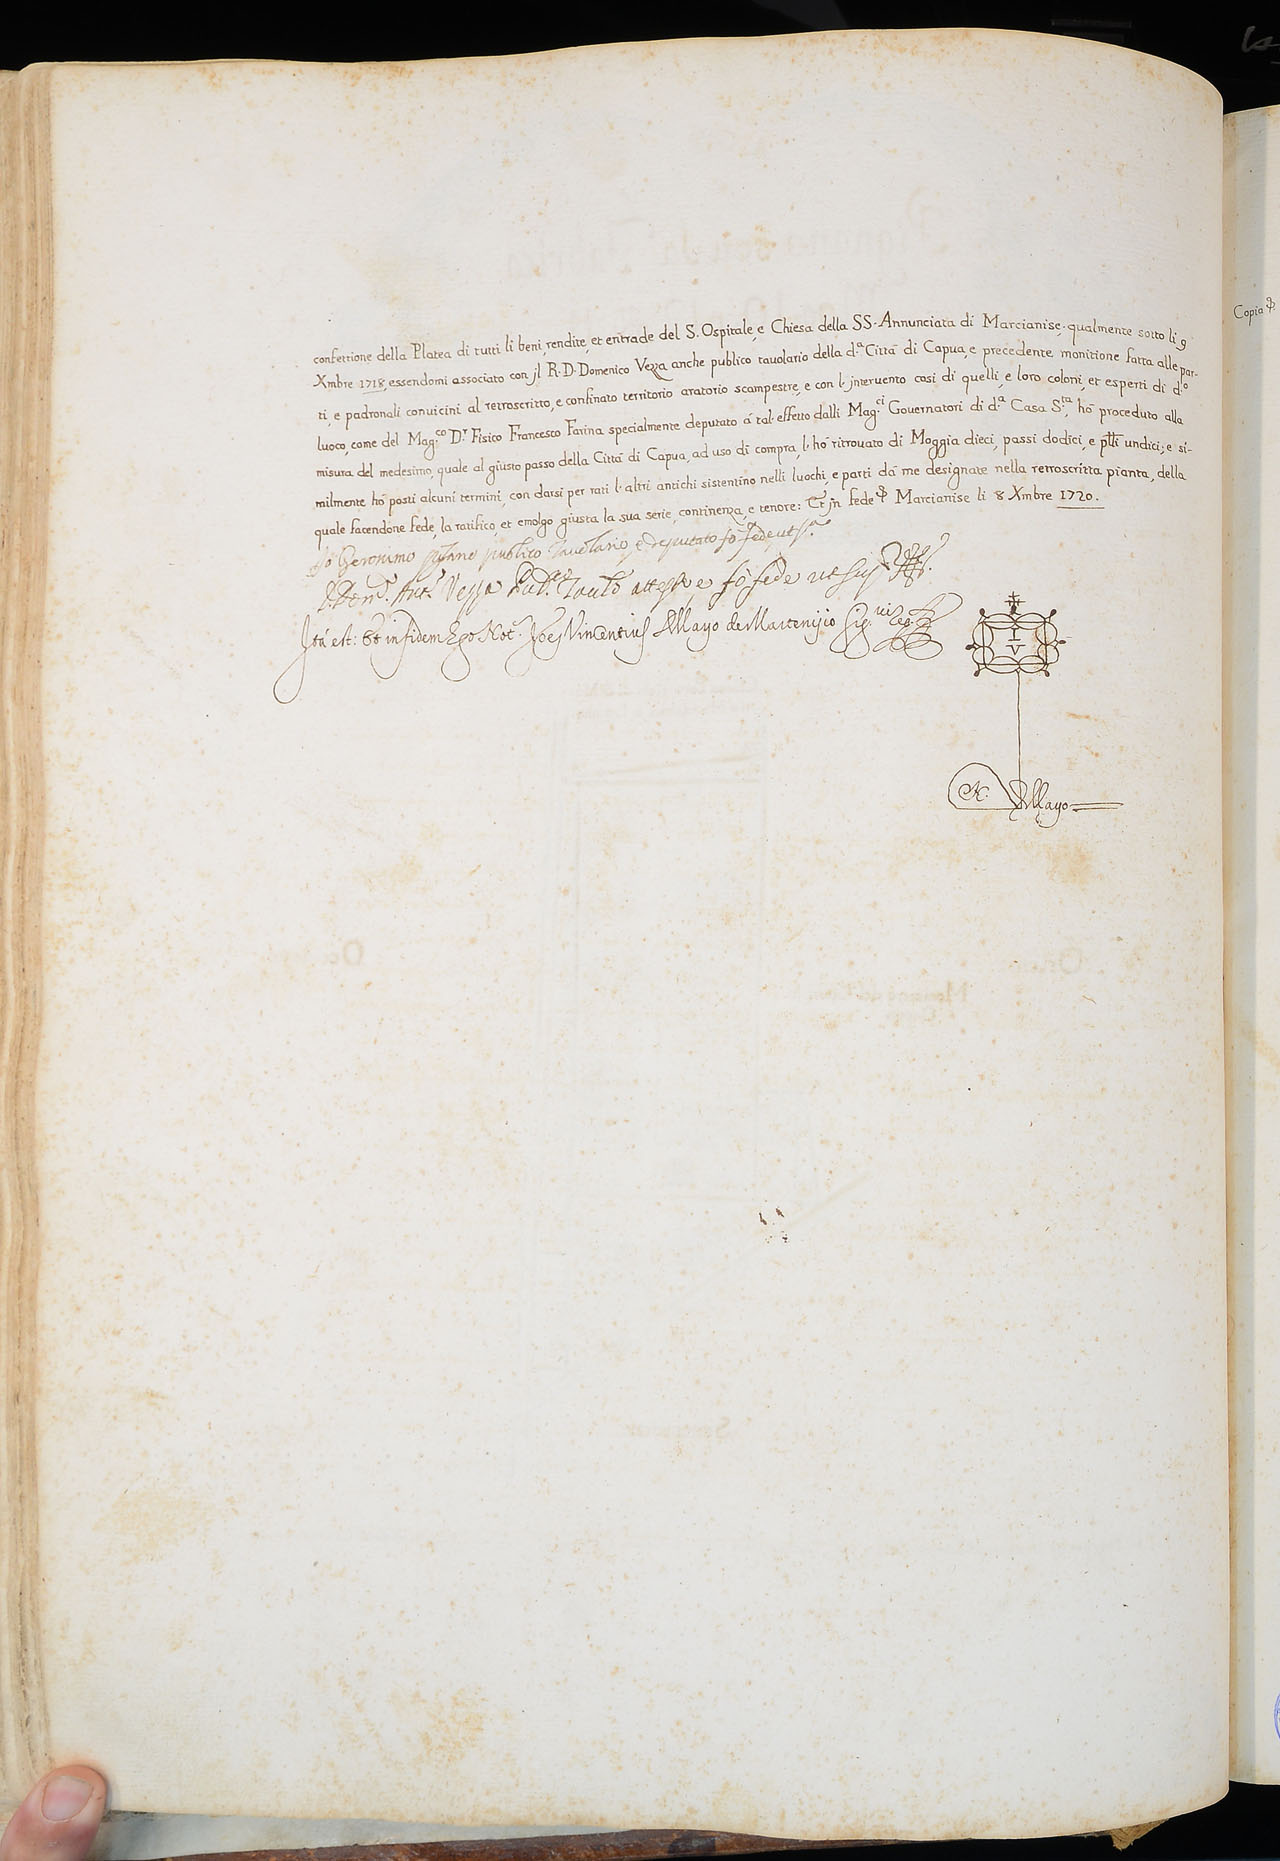 confettione della Platea di tutti li beni, rendite, et entrade del S. Ospitale, e Chiesa della SS. Annunciata di Marcianise, qualmente sotto li 9
Xmbre 1718, essendomi associato con jl R. D. Domenico Vezza anche publico tauolario della d.ª Cittá di Capua, e precedente monitione fatta alle par-
ti, e padronali conuicini al retroscritto, e confinato territorio aratorio scampestre, e con l'interuento cosí di quelli, e loro coloni, et esperti di d.º
luoco, come del Mag.co D.r Fisico Francesco Farina specialmente deputato á tal' effetto dalli Mag.ci Gouernatori di d.ª Casa S.ta, hó proceduto alla
misura del medesimo, quale al giusto passo della Cittá di Capua, ad uso di compra, l'hó ritrouato di Moggia dieci, passi dodici, e undici; e si-
milmente hó posti alcuni termini, con darsi per rati l'altri antichi sistentino nelli luochi, e parti dá me designate nella retroscritta pianta, della
quale facendone fede, la ratifico, et emolgo giusta la sua serie, continenza, e tenore: Et jn fede Marcianise li 8 Xmbre 1720.
Io Geronimo publico Tauolario, e deputato fó fede ut s.ª
D. Dom.co Ant.º Vezza Pub.co Taul.º attesto, e fó fede ut sup.ª
Ita est: Et in fidem Ego Not.r Joes Vincentius Mayo de Martenisio
I
V
N. Mayo
Copia